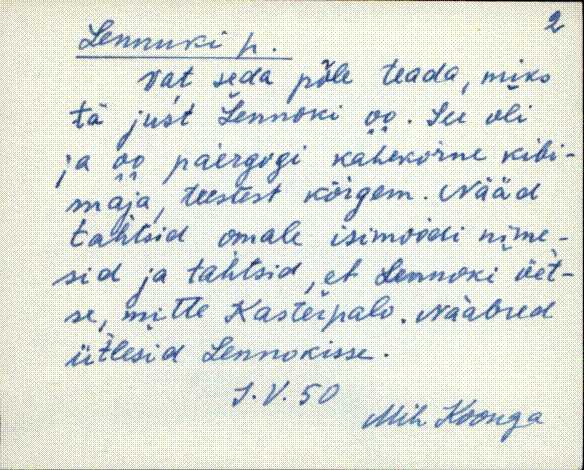 2
Lennuki p.
Vat seda põle teada, miks
tä just Lennoki oo. See oli
ja oo paergogi kahekorne kibi-
maja, teestest kõrgem. Nääd
tahtsid omale isimoodi nime-
sid ja tahtsid, et Lennoki öet-
se, mitte Kasteipalo. Nääbred
ütlesid Lennokisse.
1.V.50
Mih Koonga